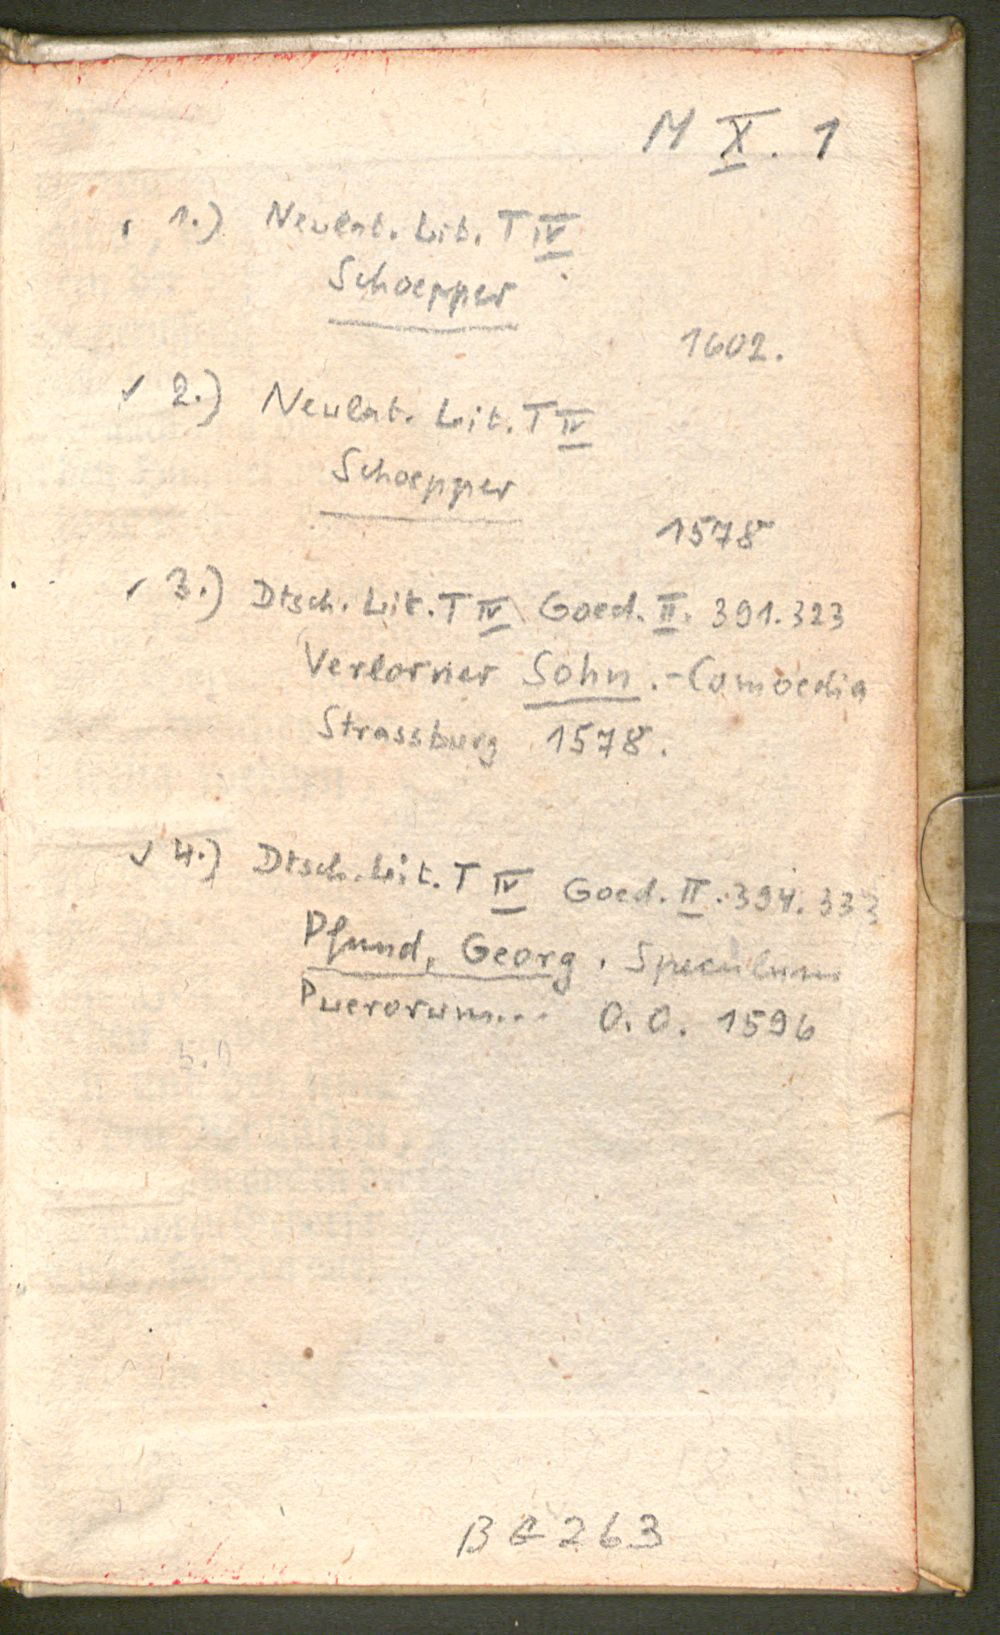 M X. 1
1.) Neulat. Lit. T IV
Schoepper
1602.
✓ 2.) Neulat. Lit. T IV
Schoepper
1578
✓ 3.) Dtsch. Lit. T IV Goed. II. 391.323
Verlorner Sohn.-Comoedia
Strassburg 1578.
✓ 4.) Dtsch. Lit. T IV Goed. II. 394. 333
Pfund, Georg. Speculum
Puerorum... O.O. 1596
B G 263